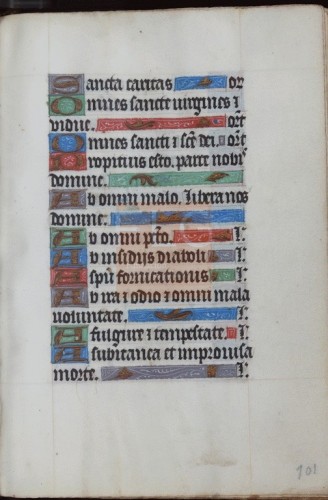 Sancta caritas or
Omnes sancte virgines ⁊
vidue. orẽ
Omnes sancti ⁊ scẽ dei. orẽ
Propitius esto. parce nobis
domine.
Ab omni malo. libera nos
domine.
Ab omni pc̃to. l'.
Ab insidijs diaboli l'.
A spũ fornicationis l'.
Ab ira ⁊ odio ⁊ omni mala
voluntate. l'.
A fulgure ⁊ tempestate. l'.
A subitanea et improvisa
morte. l'.
101